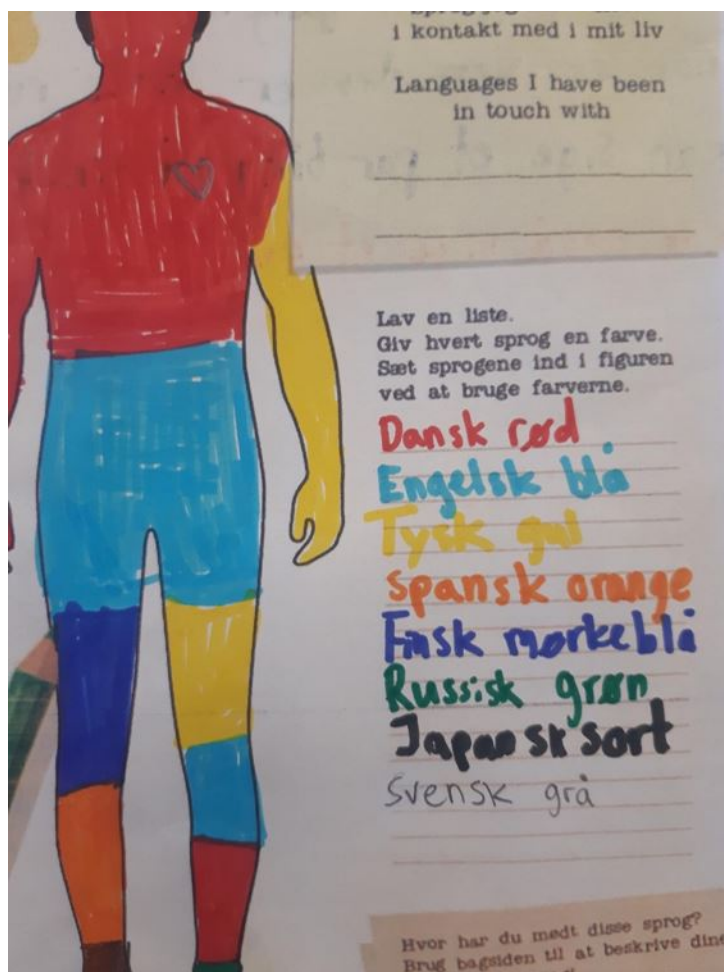 i kontakt med i mit liv
Languages I have been
in touch with
Lav en liste.
Giv hvert sprog en farve.
Sæt sprogene ind i figuren
ved at bruge farverne.
Dansk rød
Engelsk blå
Tysk gul
spansk orange
Finsk mørkeblå
Russisk grøn
Japansk sort
Svensk grå
Hvor har du mødt disse sprog?
Brug bagsiden til at beskrive dine